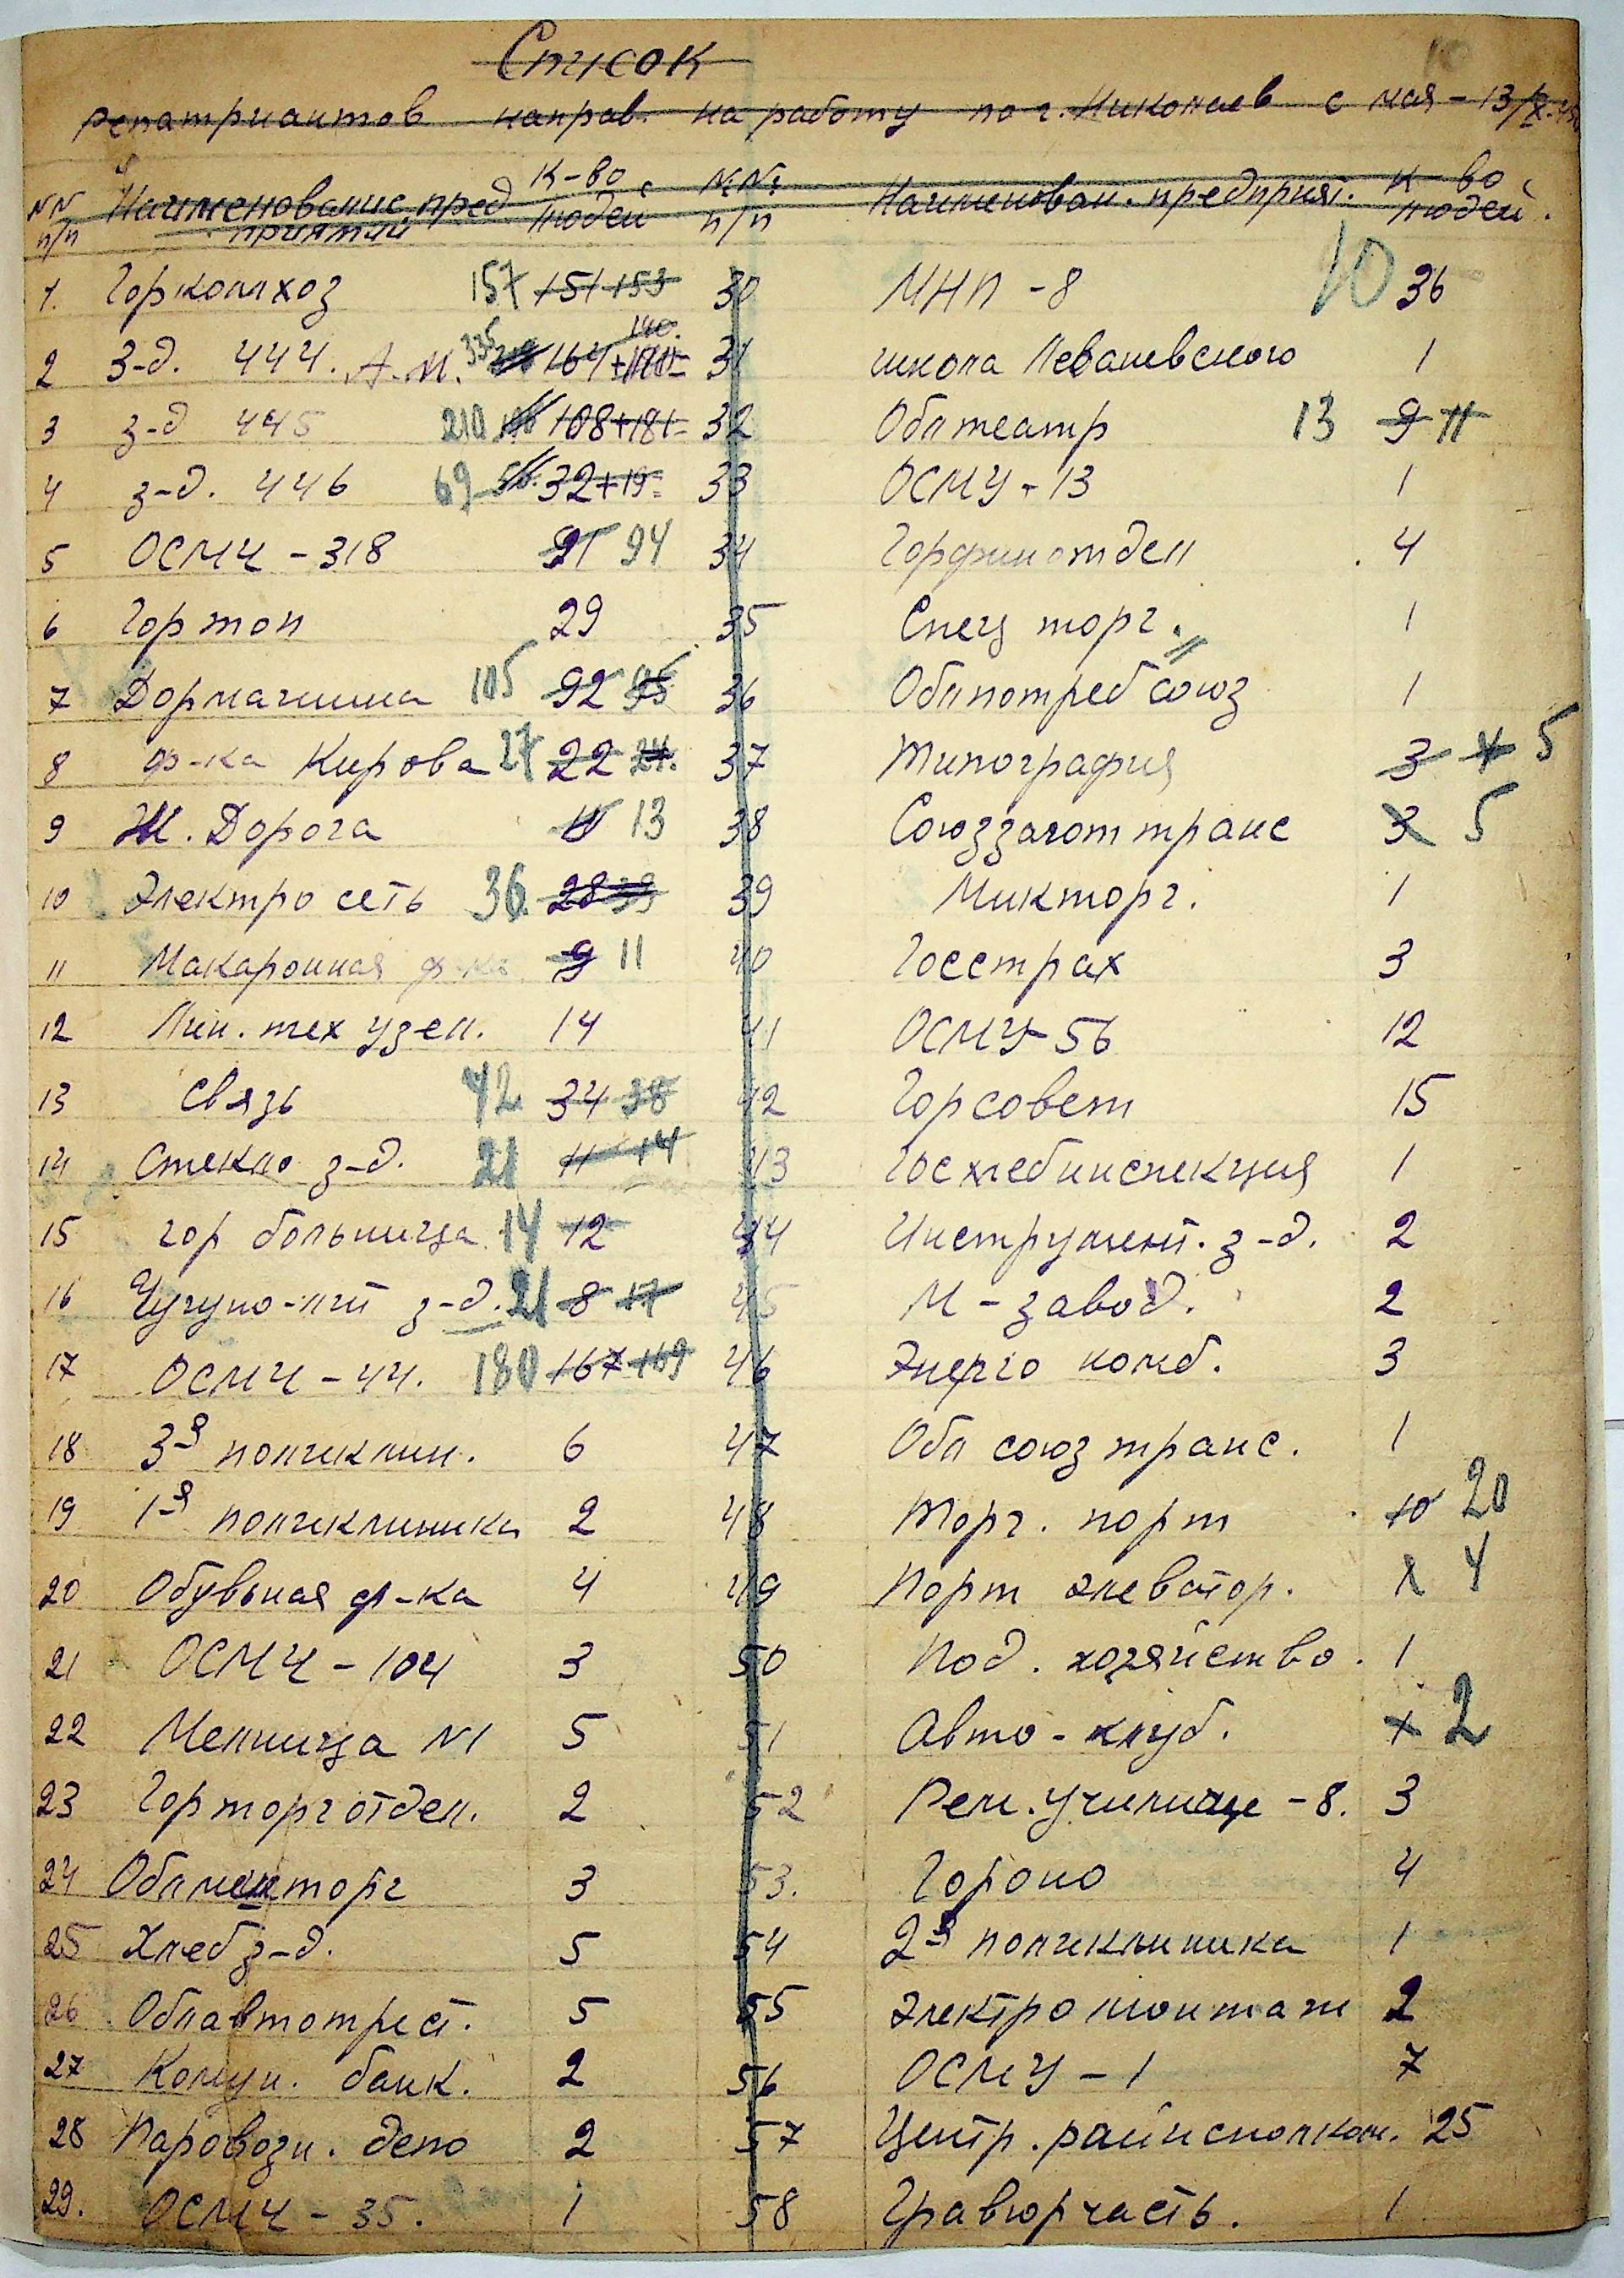 Список
репатриантов направ. на работу по г. Николаев с мая - 13/X-45
NN п/п Наименование предприятий К-во людей NN п/п Наименован. предприят. К-во людей.
1. Горкомхоз 157 151 153 30 МНП - 8 10 36
2 З-д. 444. А.М. 335 164+171= 140. 31 школа Леваневского 1
3 з-д 445 210 108+181= 32 Облтеатр 13 9 11
4 з-д. 446 69 32+19= 33 ОСМУ - 13 1
5 ОСМЧ - 318 91 94 34 Горфинотдел 4
6 Гортоп 29 35 Спец торг. 1
7 Дормашина 105 92 95 36 Облпотребсоюз 1
8 ф-ка Кирова 27 22 24. 37 Типография 3 4 5
9 Ж. Дорога 11 13 38 Союззаготтранс 3 5
10 Электро сеть 36. 28 33 39 Микторг. 1
11 Макаронная ф-ка 9 11 40 Госстрах 3
12 Лин. тех узел. 14 41 ОСМУ-56 12
13 Связь 42 34 38 42 Горсовет 15
14 Стекло з-д. 21 11 14 43 Госхлебинспекция 1
15 гор больница 14 12 44 Инструмент. з-д. 2
16 Чугуно-лит з-д. 21 8 17 45 М - завод. 2
17 ОСМЧ - 44. 180 167 169 46 Энерго комб. 3
18 3-я поликлин. 6 47 Обл союз транс. 1
19 1-я поликлиника 2 48 Торг. порт 10 20
20 Обувьная ф-ка 4 49 Порт элеватор. 4
21 ОСМЧ - 104 3 50 Под. хозяйство. 1
22 Мелница N1 5 51 Авто - клуб. 2
23 Горторготдел. 2 52 Рем. училище - 8. 3
24 Облместторг 3 53. Гороно 4
25 Хлеб з-д. 5 54 2-я поликлиника 1
26 Облавтотрест. 5 55 Электромонтаж 2
27 Комун. банк. 2 56 ОСМУ - 1 7
28 Паровозн. депо 2 57 Центр. райисполком. 25
29. ОСМЧ - 35. 1 58 Гравюрчасть. 1